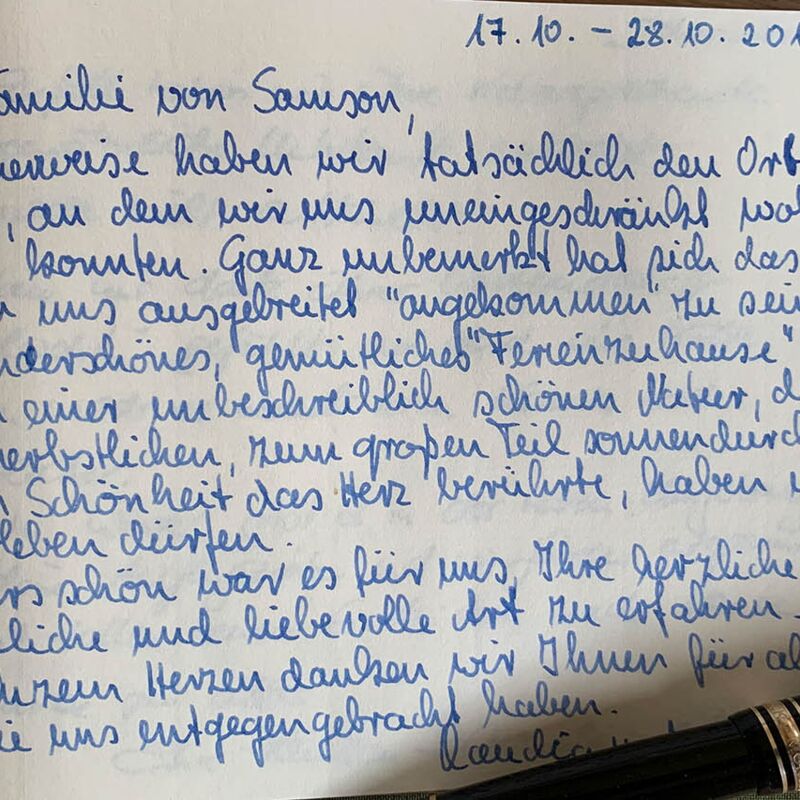 17.10. - 28.10. 201
amilie von Samson,
erweise haben wir tatsächlich den Ort
, an dem wir uns uneingeschränkt wo
konnten. Ganz unbemerkt hat sich das
uns ausgebreitet "angekommen" zu sein
nderschönes, gemütliches "Ferienzuhause"
einer unbeschreiblich schönen Natur, d
herbstlichen, zum großen Teil sonnendurch
Schönheit das Herz berührte, haben
leben dürfen.
rs schön war es für uns, Ihre herzliche
liche und liebevolle Art zu erfahren.
nzem Herzen danken wir Ihnen für al
ie uns entgegengebracht haben.
Claudia